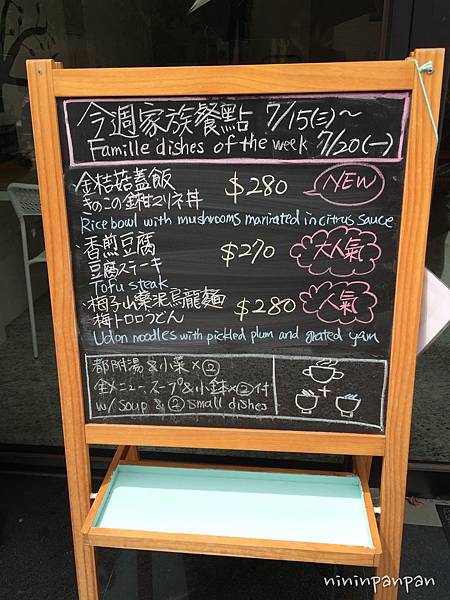 今週家族餐點 7/15(三)~
Famille dishes of the week 7/20(一)
金桔菇蓋飯
きのこの金柑マリネ丼
$280
NEW
Rice bowl with mushrooms marinated in citrus sauce
香煎豆腐
豆腐ステーキ
$270
大人氣
Tofu steak
梅子山藥泥烏龍麵
梅トロロうどん
$280
人氣
Udon noodles with pickled plum and grated yam
都附湯&小菜×②
全メニュー、スープ&小鉢×②付
w/ soup & ② small dishes
+
nininpanpan